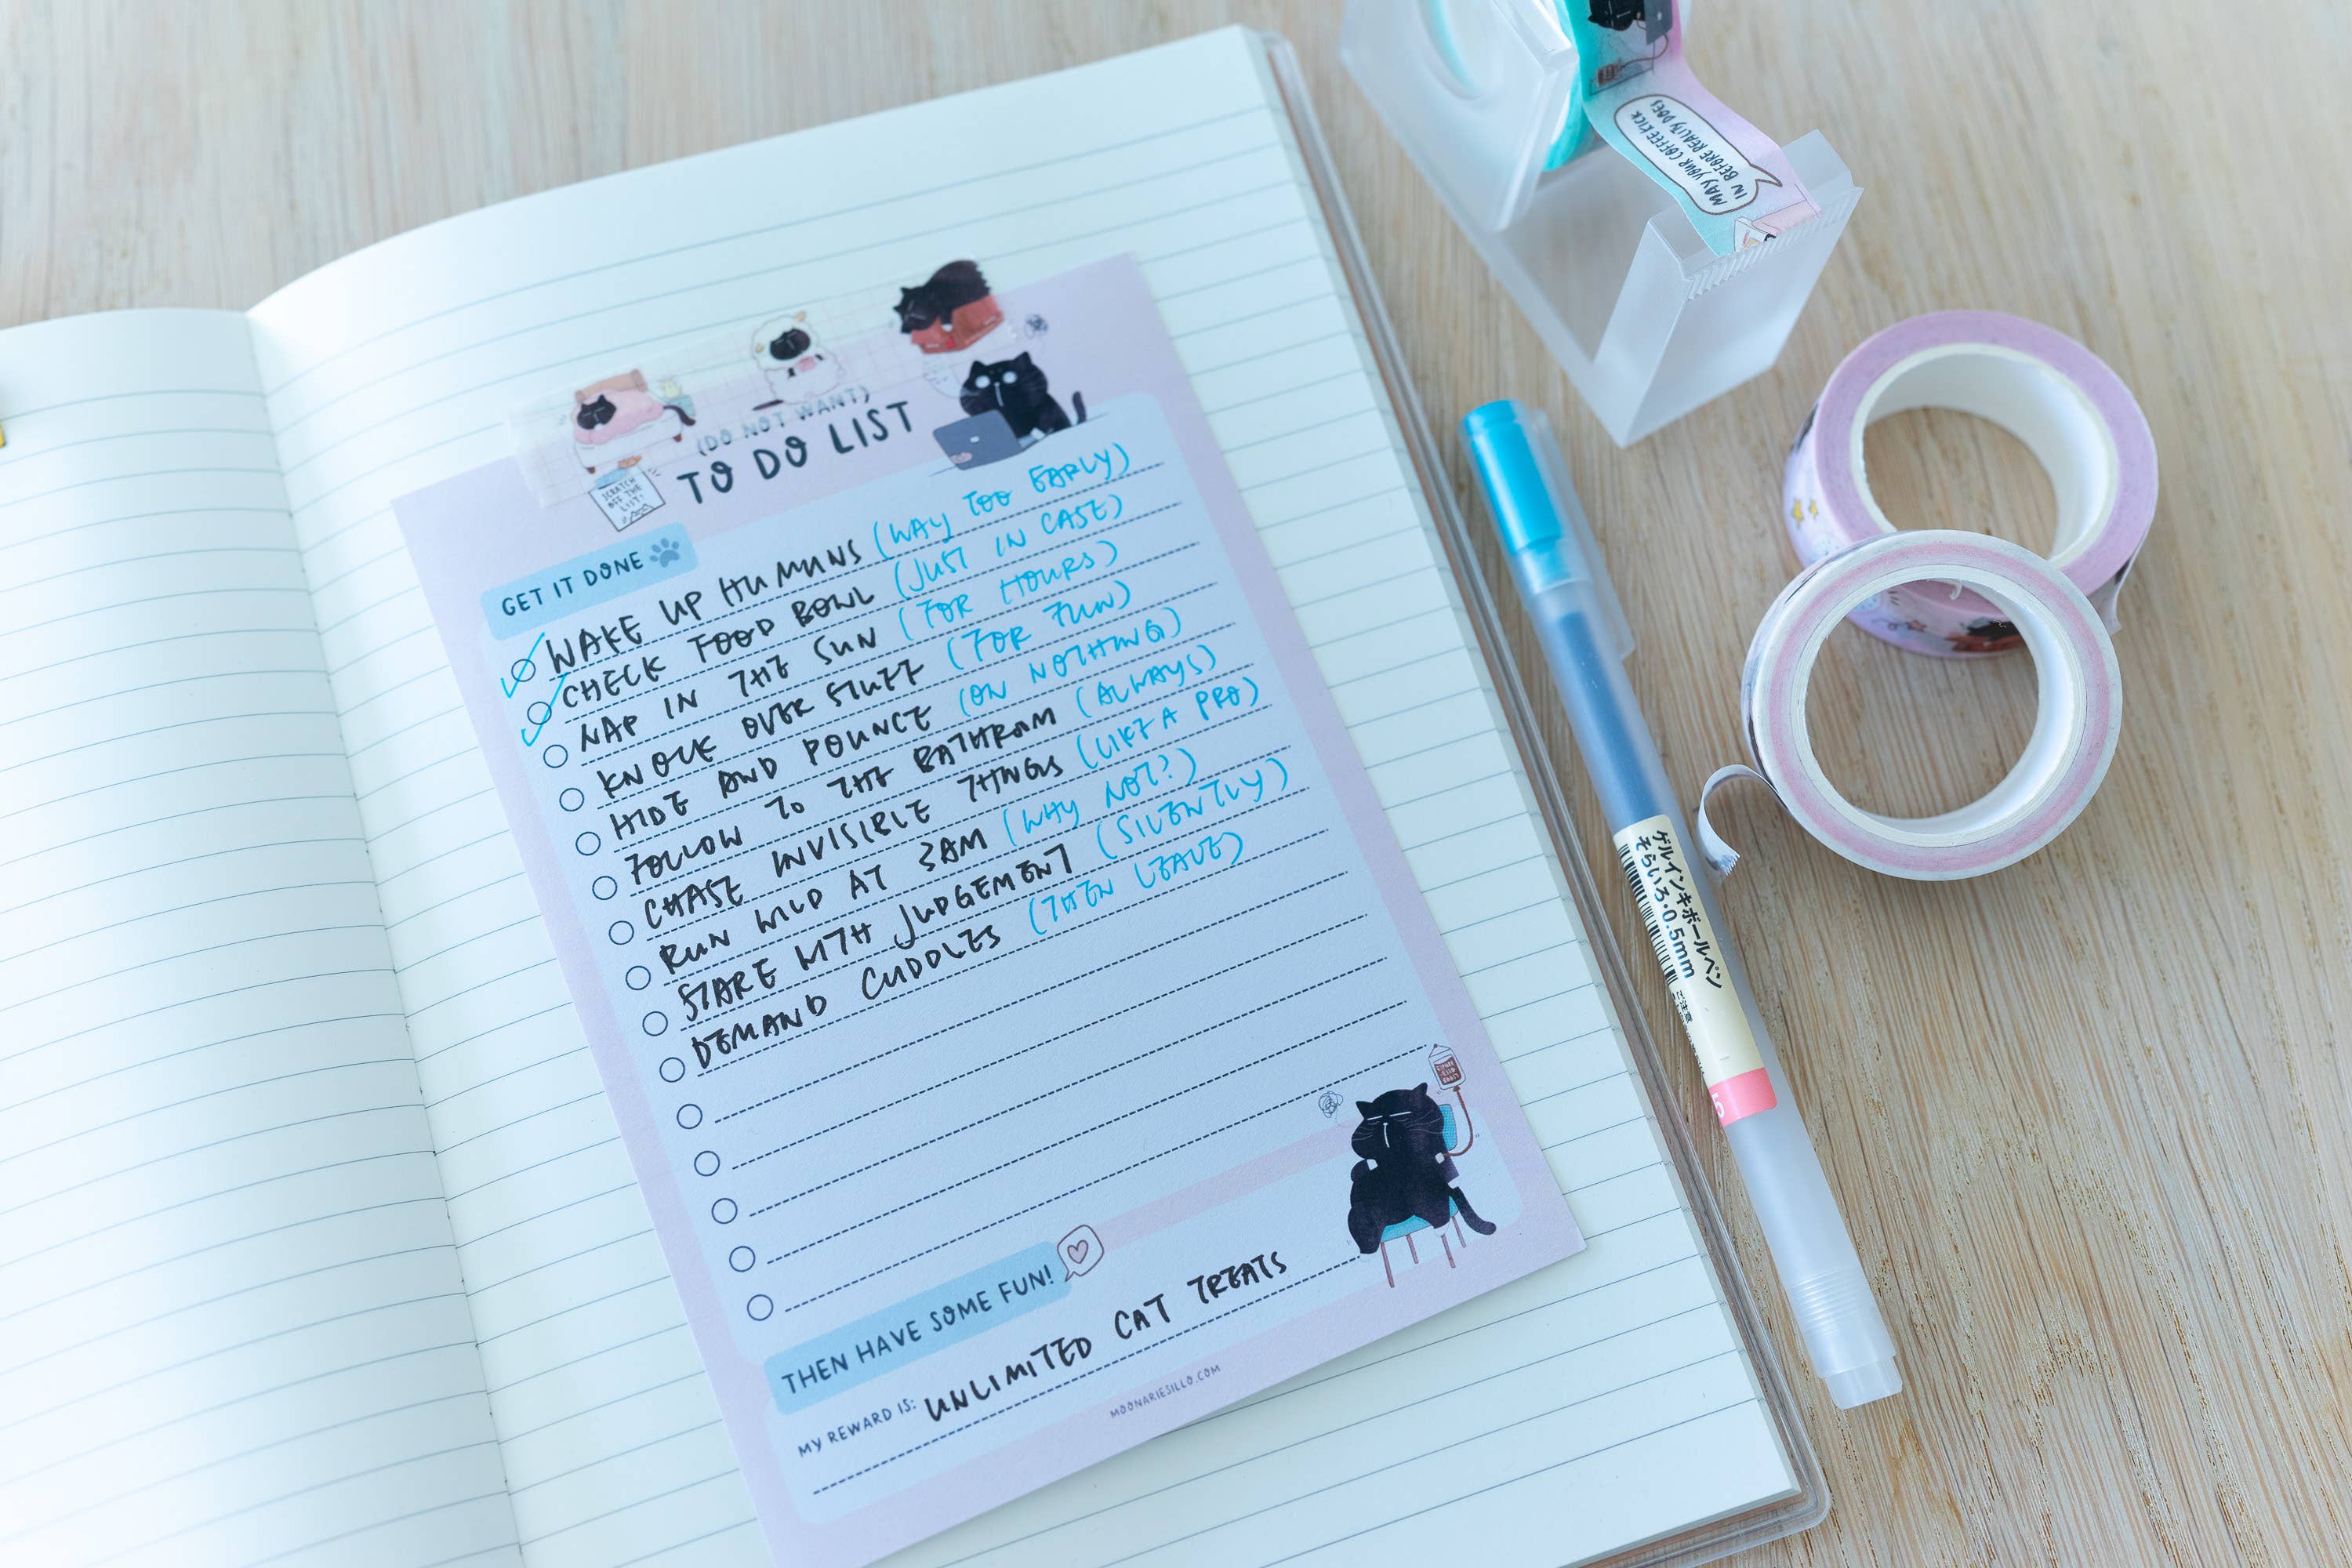 MAY YOUR COFFEE KICK
IN BEFORE REALITY DOES
(DO NOT WANT)
TO DO LIST
SCRATCH
OFF THE
LIST!
GET IT DONE
WAKE UP HUMANS (WAY TOO EARLY)
CHECK FOOD BOWL (JUST IN CASE)
NAP IN THE SUN (FOR HOURS)
KNOCK OVER STUFF (FOR FUN)
HIDE AND POUNCE (ON NOTHING)
FOLLOW TO THE BATHROOM (ALWAYS)
CHASE INVISIBLE THINGS (LIKE A PRO)
RUN WILD AT 3AM (WHY NOT?)
STARE WITH JUDGEMENT (SILENTLY)
DEMAND CUDDLES (THEN LEAVE)
THEN HAVE SOME FUN!
MY REWARD IS: UNLIMITED CAT TREATS
MOONARIESILLO.COM
ゲルインキボールペン
そらいろ・0.5mm
ご注意